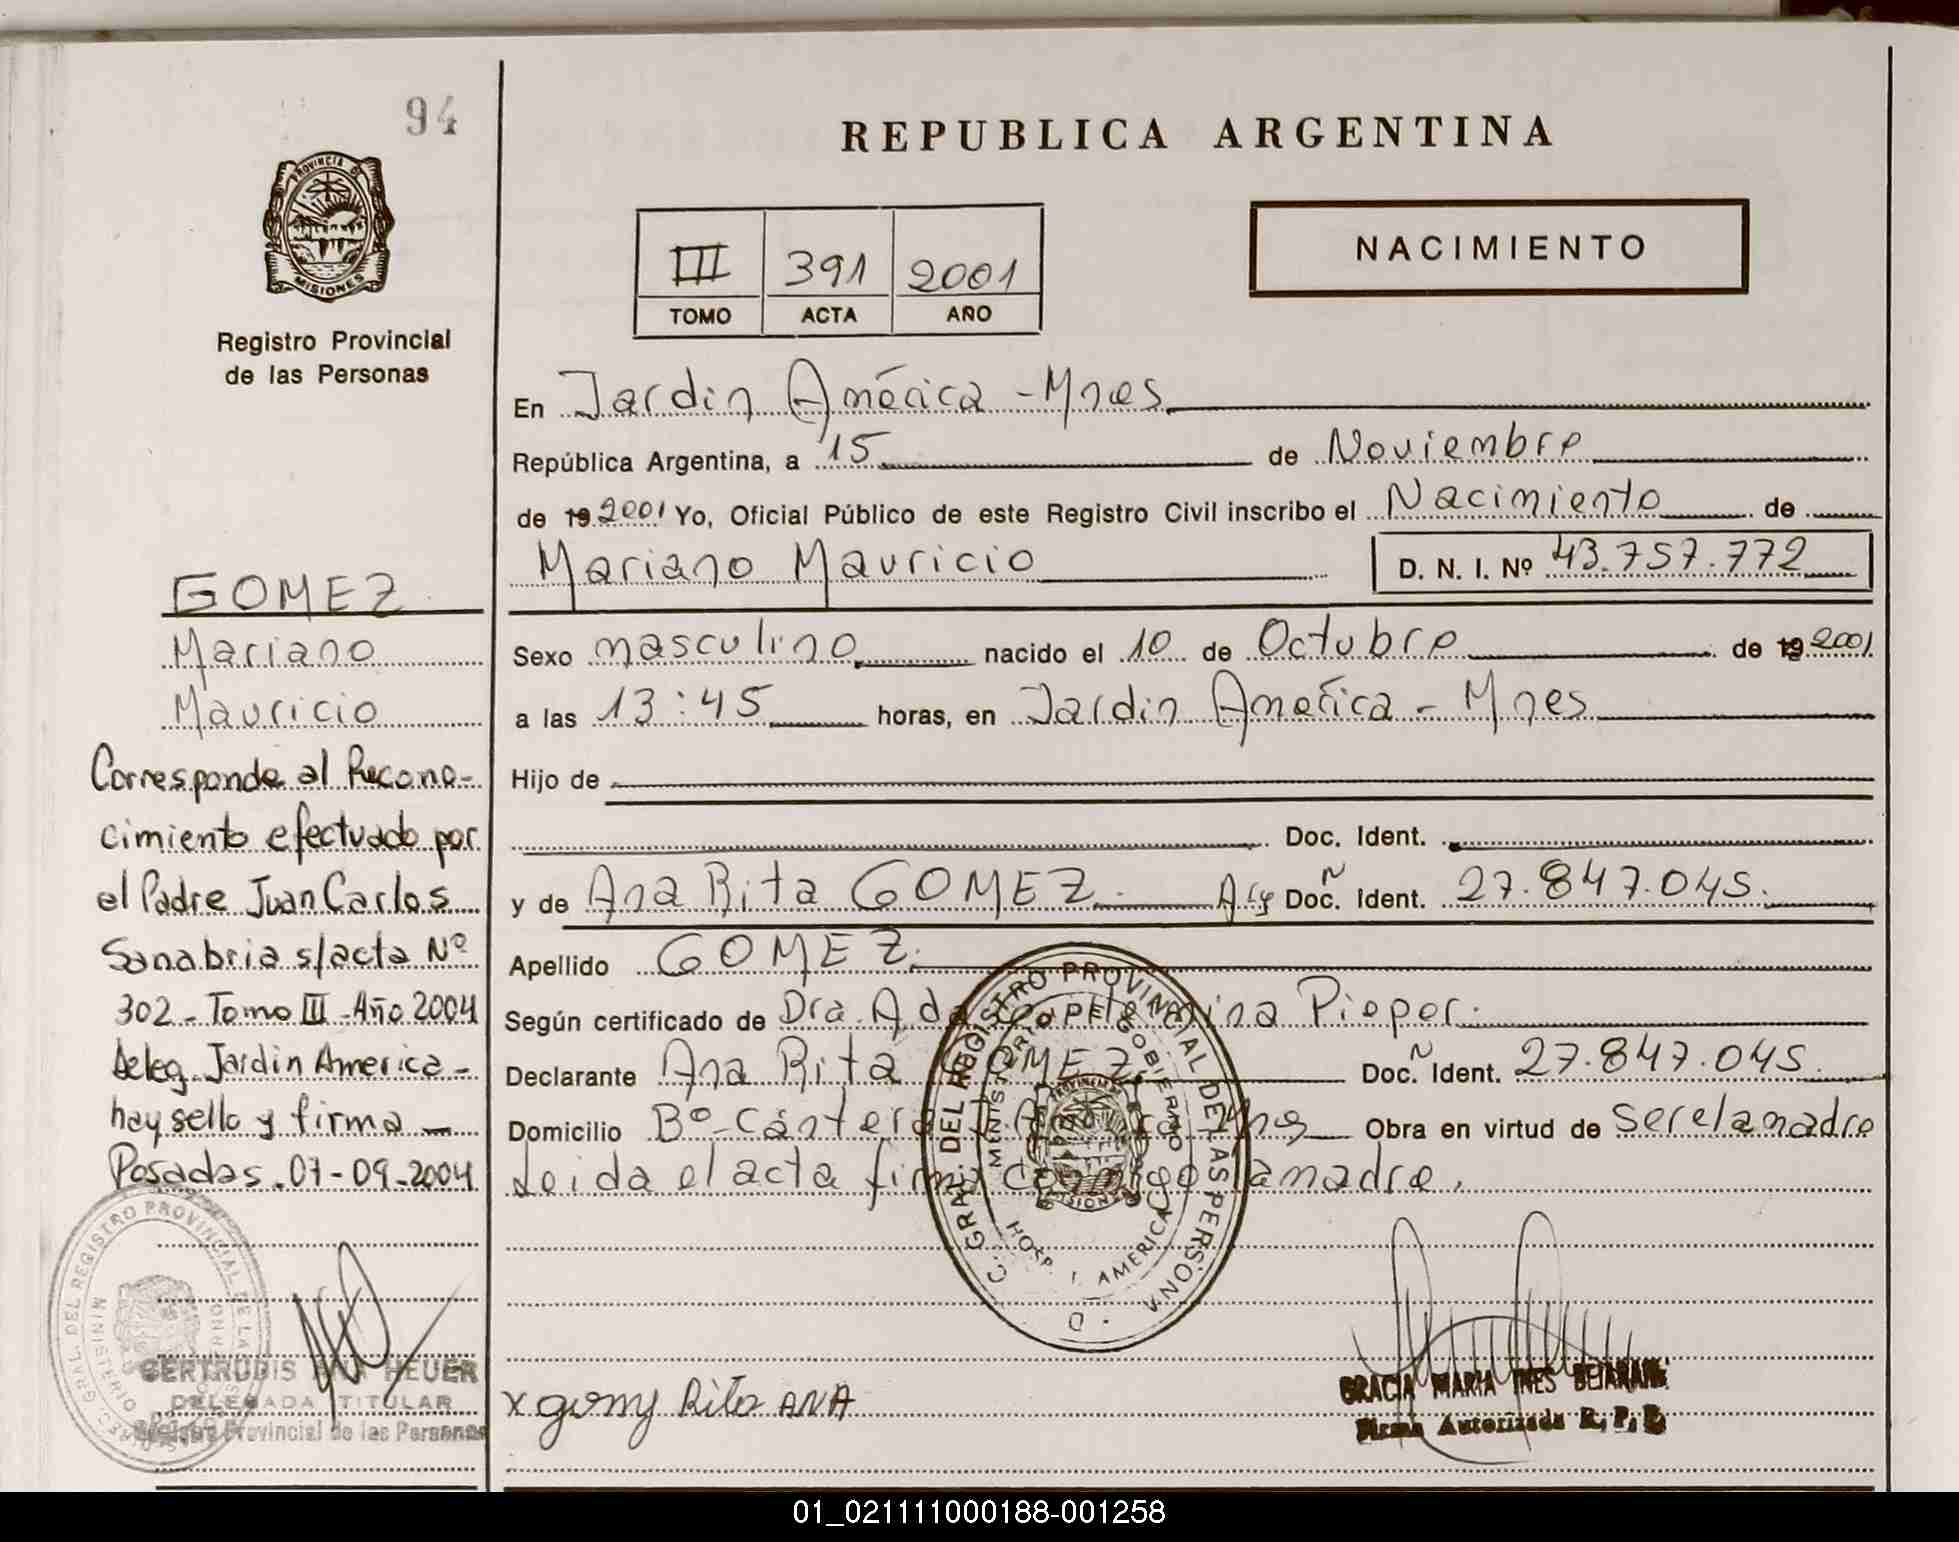 94
PROVINCIA DE
MISIONES
Registro Provincial
de las Personas
GOMEZ
Mariano
Mauricio
Corresponde al Recono-
cimiento efectuado por
el Padre Juan Carlos
Sanabria s/acta Nº
302 - Tomo III - Año 2004
Deleg. Jardin America -
hay sello y firma —
Posadas. 07-09-2004
GERTRUDIS ANA HEUER
DELEGADA TITULAR
Provincial de las Personas
REPUBLICA ARGENTINA
III 391 2001
TOMO ACTA AÑO
NACIMIENTO
En Jardin América - Mnes
República Argentina, a 15 de Noviembre
de 19 2001 Yo, Oficial Público de este Registro Civil inscribo el Nacimiento de
Mariano Mauricio D. N. I. Nº 43.757.772
Sexo masculino nacido el 10 de Octubre de 19 2001
a las 13:45 horas, en Jardin América - Mnes
Hijo de
Doc. Ident.
y de Ana Rita GOMEZ. Arg Doc. Ident. 27.847.045.
Apellido GOMEZ.
Según certificado de Dra. Ada Pieper.
Declarante Ana Rita GOMEZ. Doc. Ident. 27.847.045.
Domicilio Bº Cantera Mnes Obra en virtud de ser el a madre
Leida el acta firma conmigo la madre.
GRAL. DEL REGISTRO PROVINCIAL DE LAS PERSONAS
MINISTERIO DE GOBIERNO
HOSP. J. AMERICA
x gomez Rita ANA
GRACIA MARIA INES BEJARANO
Firma Autorizada R. P. P.
01_021111000188-001258